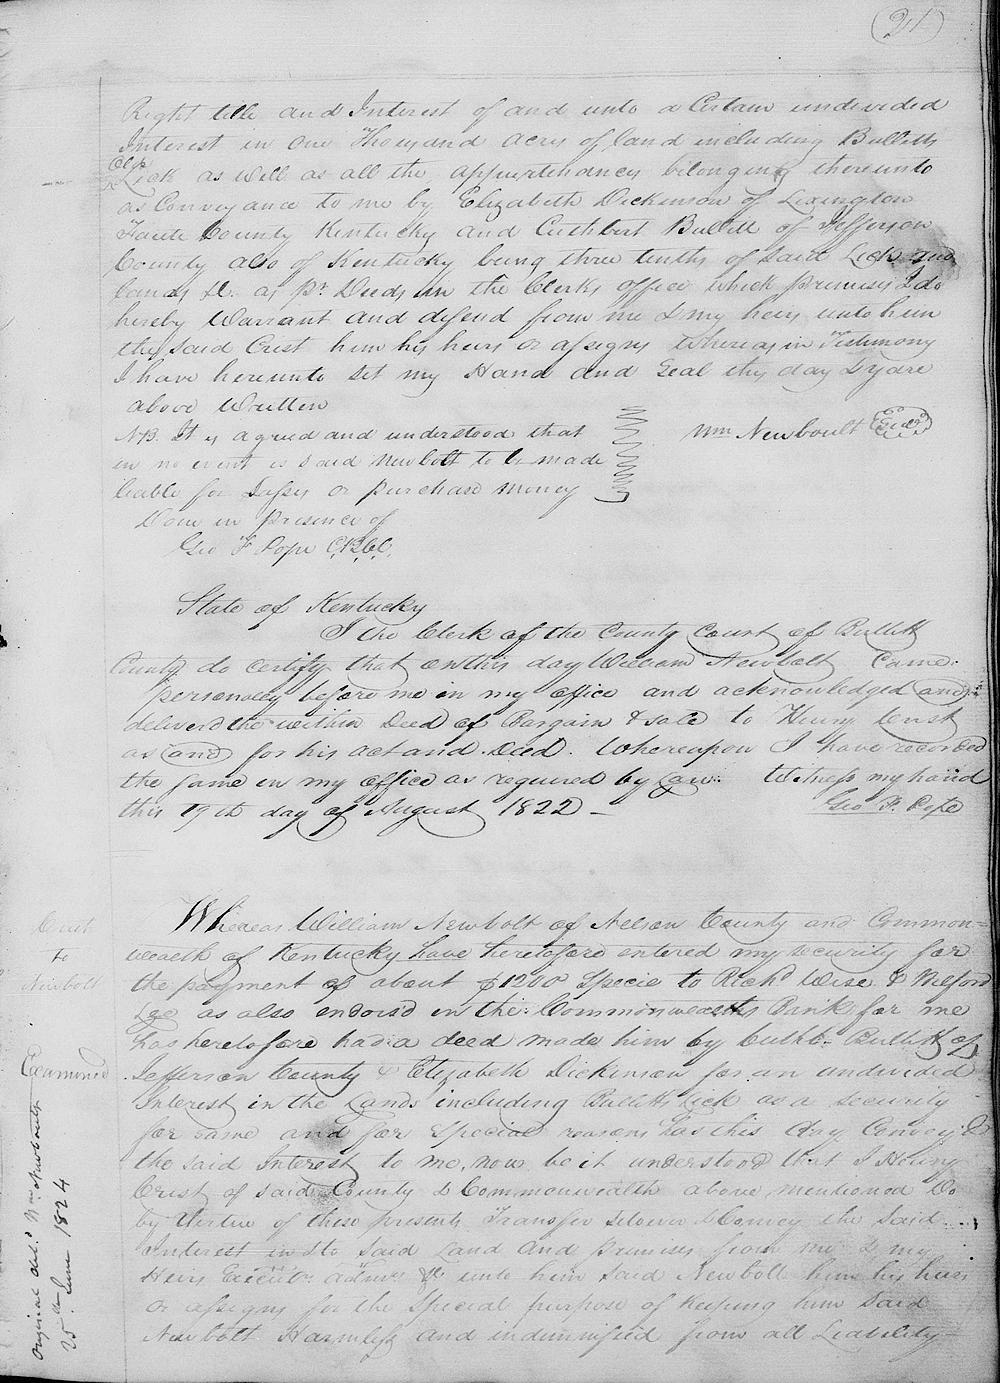 (21)
Right title and Interest of and unto a Certain undevided
Interest in One Thousand acres of land including Bullitts
Lick as well as all the appurtenances belonging thereunto
as Conveyance to me by Elizabeth Dickinson of Lexington
Faiette County Kentucky and Cuthbert Bullitt of Jefferson
County also of Kentucky being three tenths of said Lick and
lands &c. as pr. Deeds in the Clerks office which premises I do
hereby Warrant and defend from me & my heirs unto him
the said Crist him his heirs or assigns Whereas in Testimony
I have hereunto set my Hand and Seal the day & yare
above Written
NB. It is agreed and understood that
in no event is said Newbolt to be made
liable for Losses or purchase money
Wm Newboult Seal
Done in presence of
Geo F Pope C.B.C.C.
State of Kentucky
I the Clerk of the County Court of Bullitt
County do Certify that on this day William Newbolt Came
personaley before me in my office and acknowledged (and)
deliverd the within Deed of Bargain & sale to Henry Crist
as (and) for his act and Deed. Whereupon I have recorded
the same in my office as required by Law. Witness my hand
this 19th day of August 1822 –
Geo F. Pope
Crist
to
Newbolt
Examined
Original deld. Wm Newboult
25th June 1824
Whereas William Newbolt of Nelson County and Common=
wealth of Kentucky have heretofore entered my security for
the payment of about $1200 Specie to Richd Wise & Wilford
Lee as also endorsd in the Commonwealths Bank for me
has heretofore had a deed made him by Cuthb. Bullitt of
Jefferson County & Elizabeth Dickinson for an undivided
Interest in the Lands including Bullitts Lick as a security
for same and for Special reasons has this day Convey'd
the said Interest to me, now be it understood that I Henry
Crist of said County & Commonwealth above mentioned Do
by Virtue of these presents Transfer & Convey the Said
Interest in & to Said Land and premises from me & my
Heirs Executs. admrs. &c unto him said Newbolt him his heirs
or assigns for the Special purpose of Keeping him said
Newbolt Harmless and indemnified from all Leability